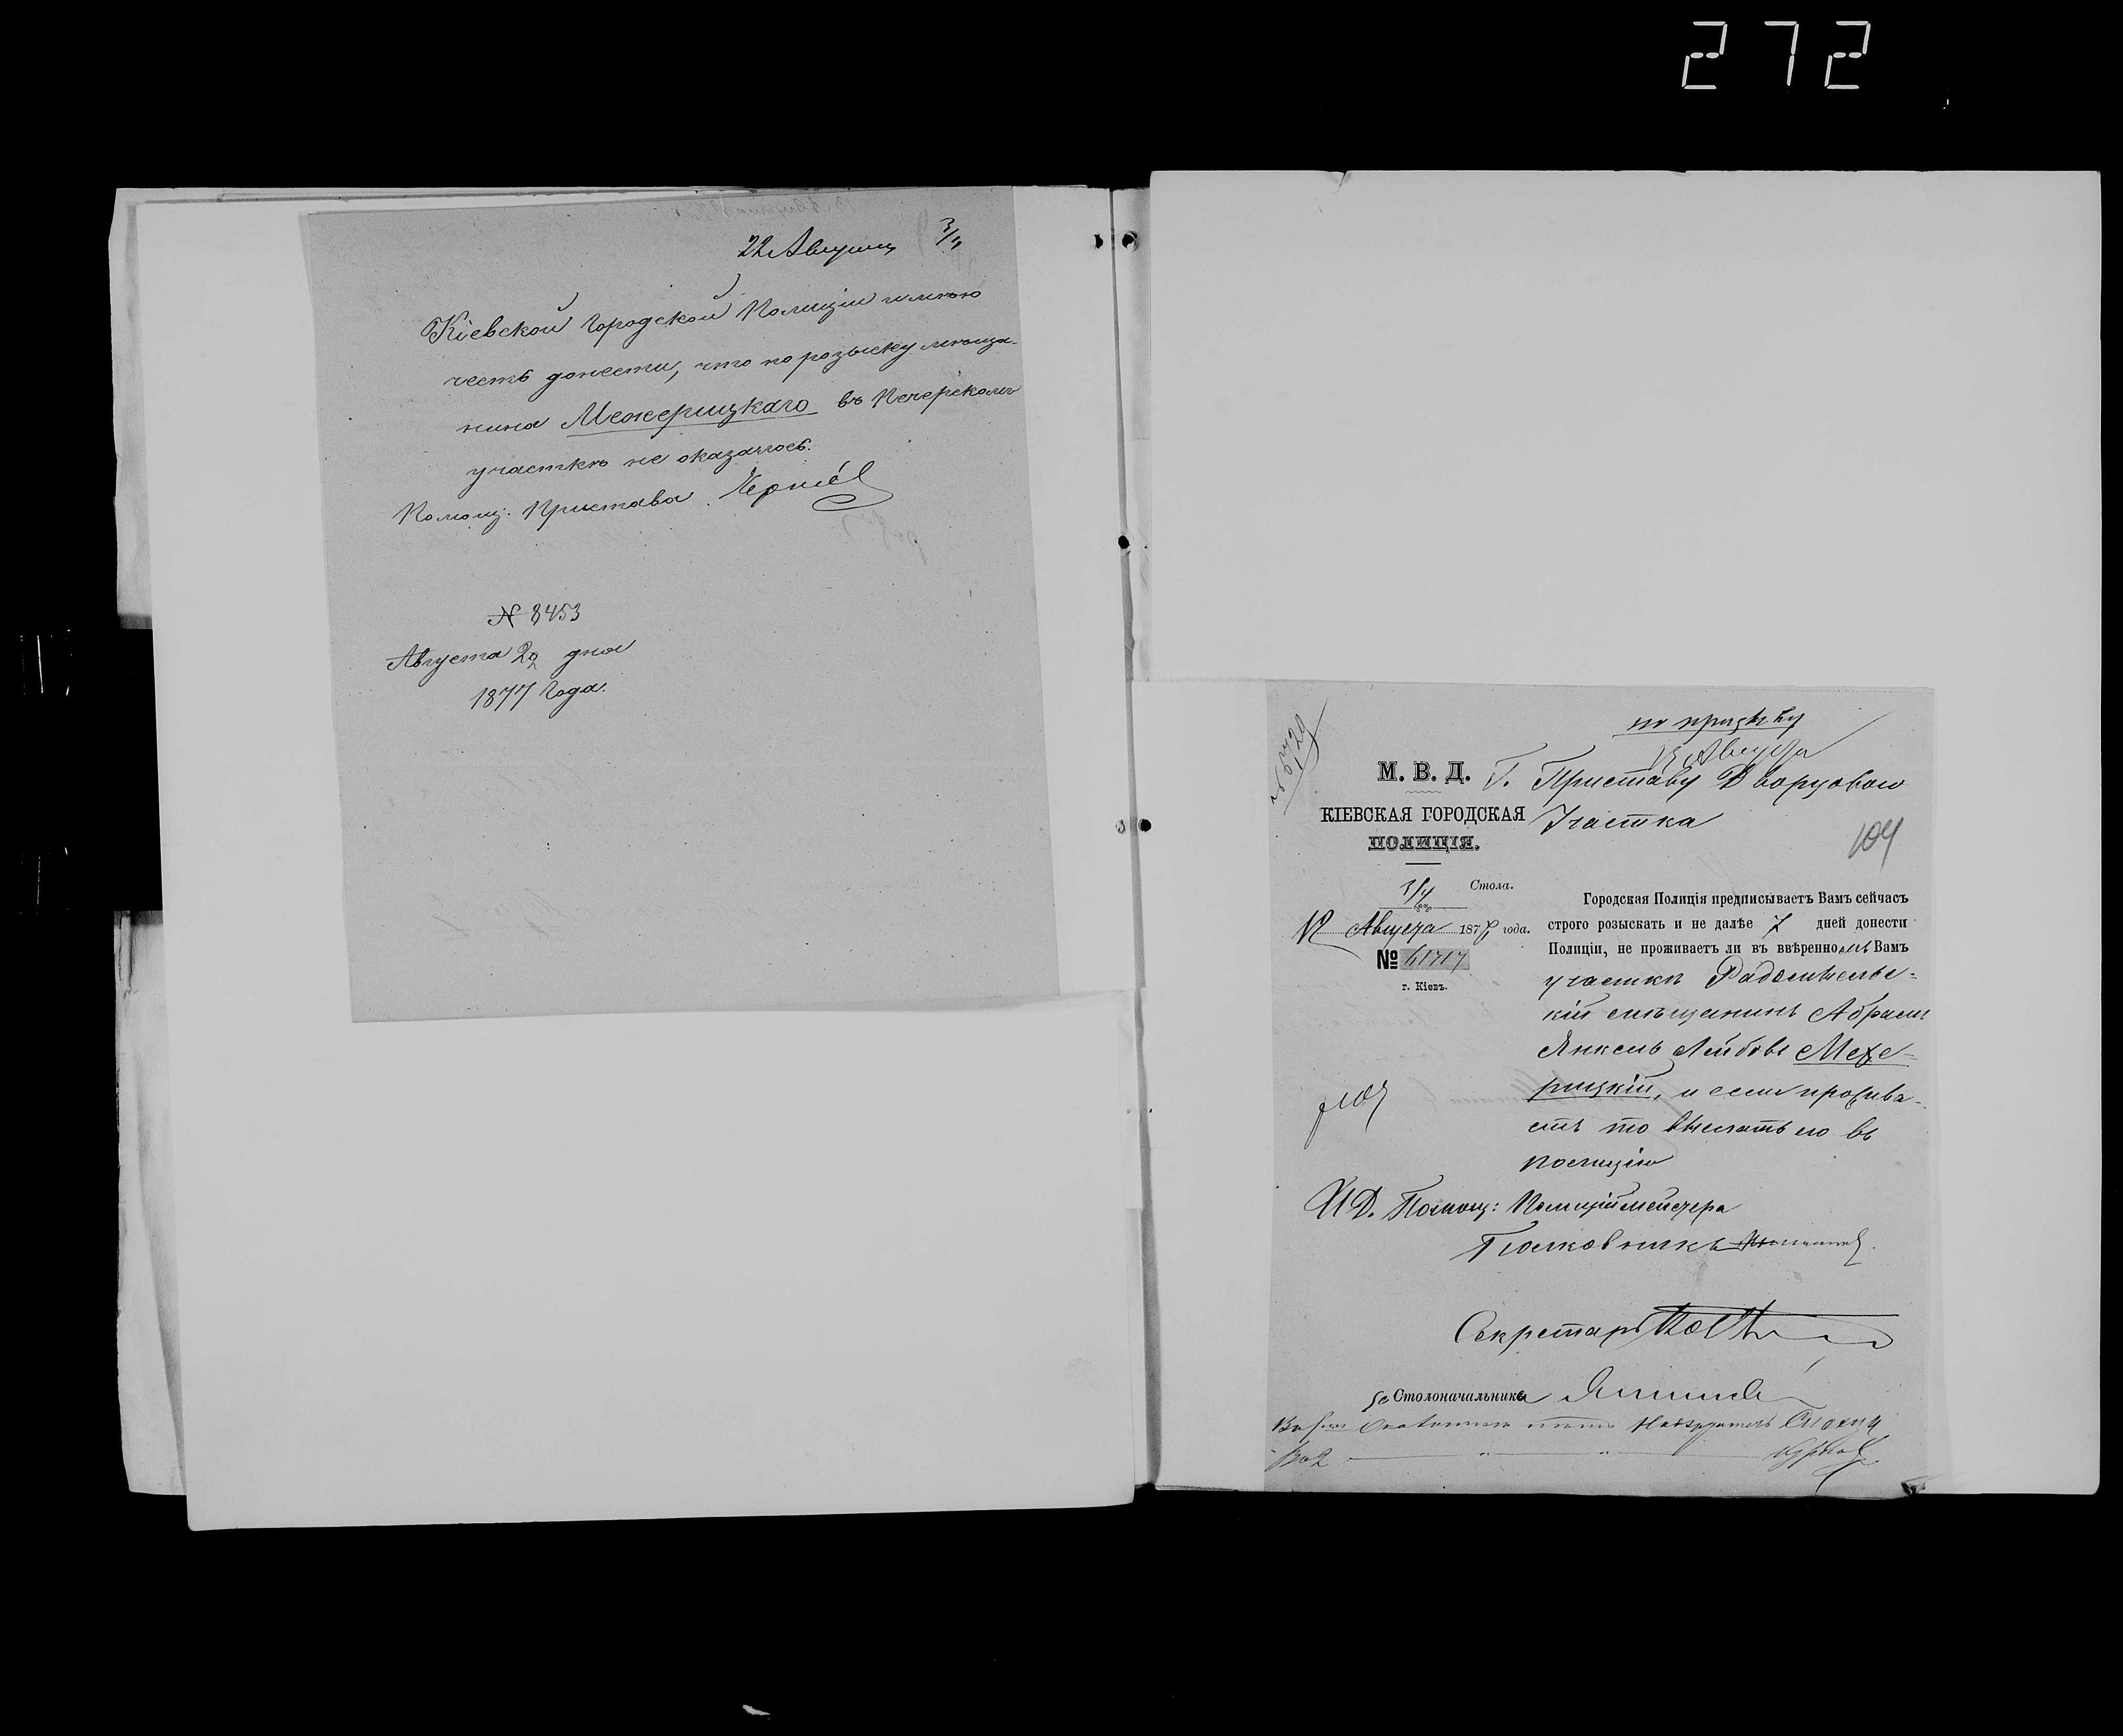 272
22 Августа 3/4
Кіевской Городской Полиціи имѣю
честь донести, что по розыску мѣща-
нина Межерицкаго въ Печерскомъ
участкѣ не оказалось.
Помощ. Пристава
№ 8453
Августа 22 дня
1877 Года.
по призыву
12 Августа
М. В. Д.
Г. Приставу Дворцоваго
КІЕВСКАЯ ГОРОДСКАЯ
Участка
ПОЛИЦІЯ.
104
3/4 Стола.
12 Августа 1877 года.
№ 61717
г. Кіевъ.
Городская Полиція предписываетъ Вамъ сейчасъ
строго розыскать и не далѣе 7 дней донести
Полиціи, не проживаетъ ли въ ввѣренномъ Вамъ
участкѣ Радомысльс-
кій мѣщанинъ Абрамъ
Янкель Лейбовъ Меже-
рицкій, и если прожива-
етъ то выслать его въ
полицію
И Д. Помощ: Полиціймейстера
Полковникъ
Секретарь
Столоначальника